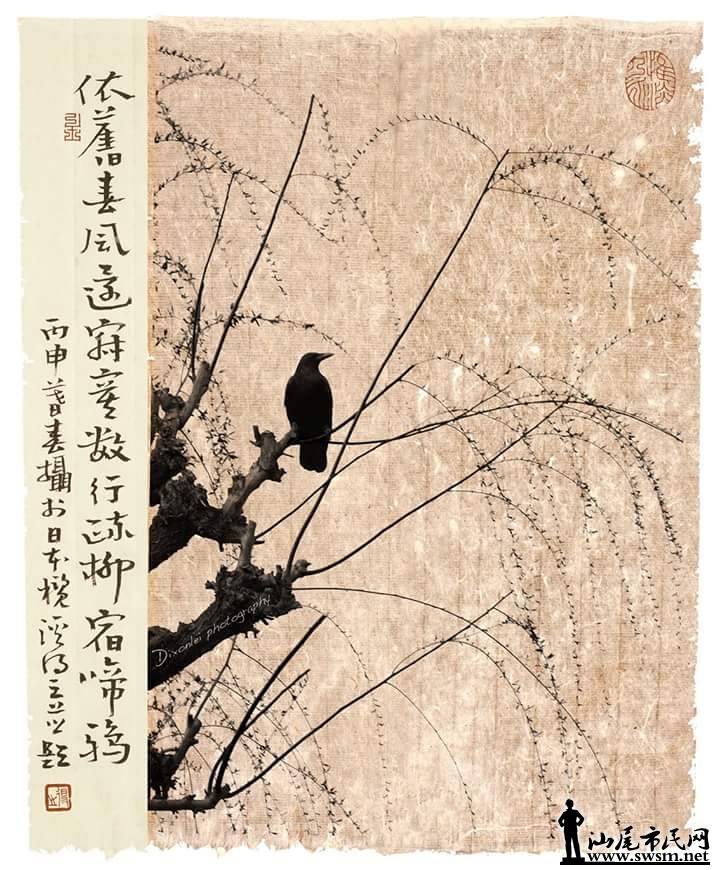 依舊春风還寂寞数行疏柳宿啼鴉
丙申暮春攝於日本溪題
Dixonlei photography
汕尾市民网
www.swsm.net